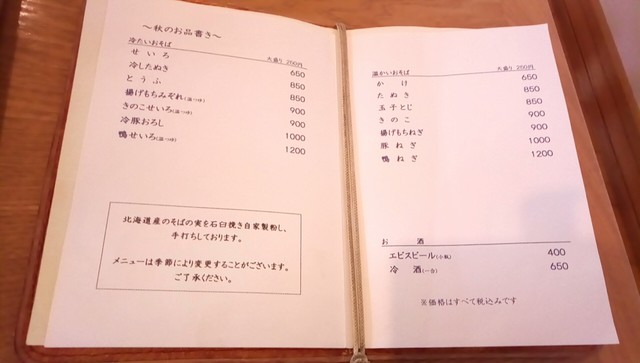 ～秋のお品書き～
冷たいおそば 大盛り 200円
せいろ 650
冷したぬき 850
とうふ 850
揚げもちみぞれ(温つゆ) 900
きのこせいろ(温つゆ) 900
冷豚おろし 1000
鴨せいろ(温つゆ) 1200
北海道産のそばの実を石臼挽き自家製粉し、
手打ちしております。
メニューは季節により変更することがございます。
ご了承ください。
温かいおそば 大盛り 200円
かけ 650
たぬき 850
玉子とじ 850
きのこ 900
揚げもちねぎ 900
豚ねぎ 1000
鴨ねぎ 1200
お酒
エビスビール(小瓶) 400
冷酒(一合) 650
※価格はすべて税込みです